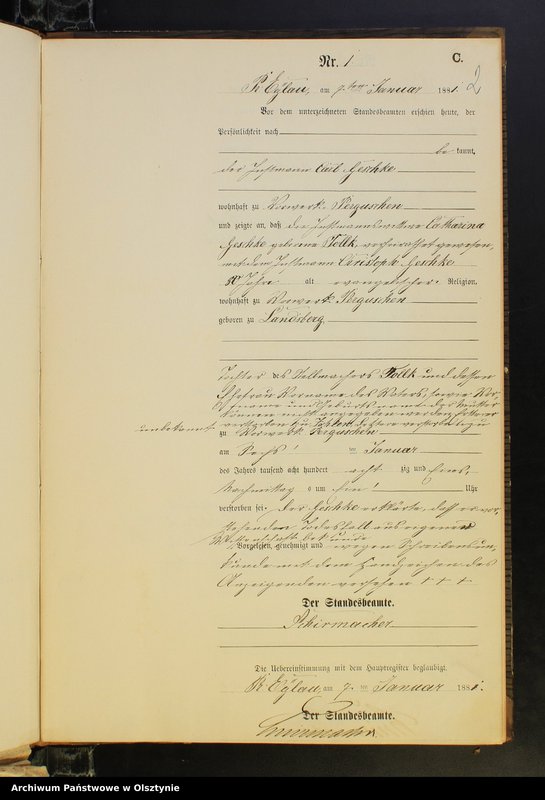 Nr. 1
C.
2
Pr. Eylau, am 7ten Januar 1881.
Vor dem unterzeichneten Standesbeamten erschien heute, der
Persönlichkeit nach
be kannt,
der Instmann Carl Geschke
wohnhaft zu Vorwerk Perguschen
und zeigte an, daß die Instmannswittwe Catharina
Geschke geborene Tollk, verheirathet gewesen
mit dem Instmann Christoph Geschke
Jahre alt evangelischer Religion,
wohnhaft zu Vorwerk Perguschen
geboren zu Landsberg
Tochter des Stellmachers Tollk und dessen
Ehefrau Vorname des Vaters, sowie Vor-
und Geburtsname der Mutter
können nicht angegeben werden,
unbekannt
zu Vorwerk Perguschen
am Sechs! ten Januar
des Jahres tausend acht hundert acht zig und Eins,
Nachmittag s um Ein! Uhr
verstorben sei. Der Geschke erklärte, daß er vor-
stehenden Todesfall aus eigener
Wissenschaft bekunde
Vorgelesen, genehmigt und wegen Schreibensun-
kunde mit dem Handzeichen des
Anzeigenden versehen + + +
Der Standesbeamte.
Schirmacher
Die Uebereinstimmung mit dem Hauptregister beglaubigt.
Pr. Eylau, am 7. ten Januar 1881.
Der Standesbeamte.
Schirmacher
Archiwum Państwowe w Olsztynie